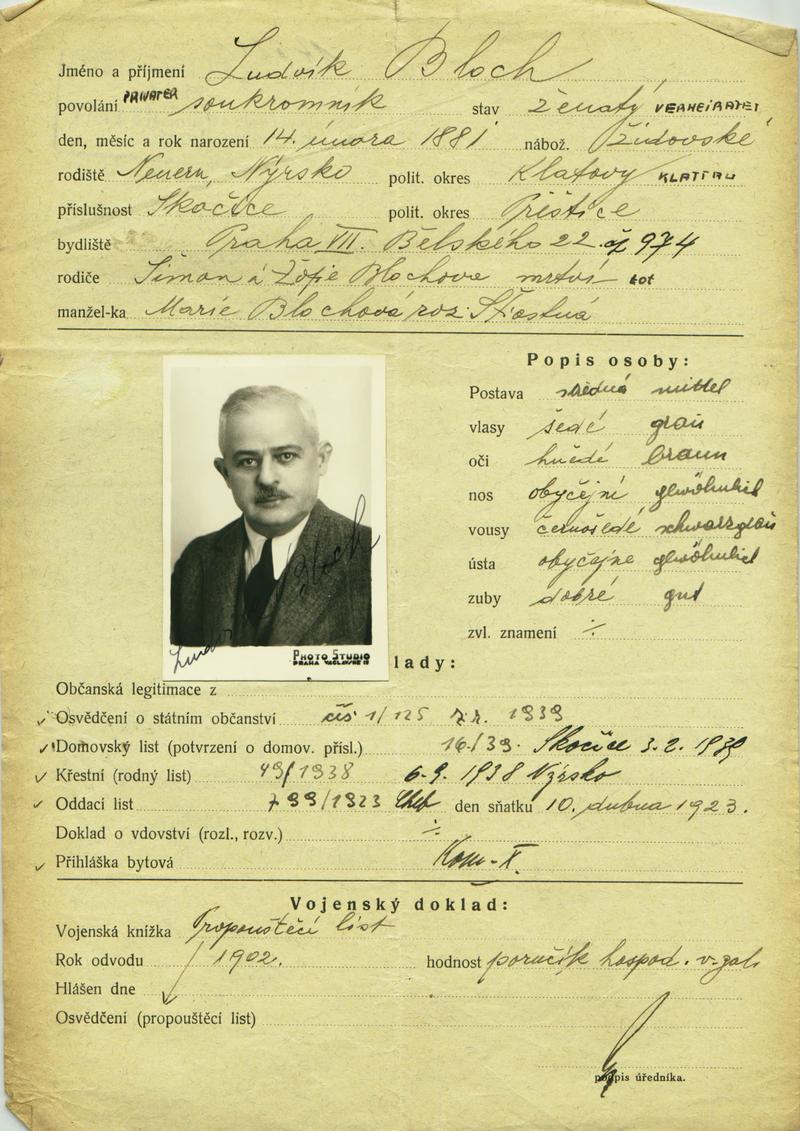 Jméno a příjmení Ludvík Bloch
povolání PRIVATER soukromník stav ženatý VERHEIRATET
den, měsíc a rok narození 14. února 1881 nábož. židovské
rodiště Neuern, Nýrsko polit. okres Klatovy KLATTAU
příslušnost Skočice polit. okres Přeštice
bydliště Praha VII. Bělského 22. čp 974
rodiče Šimon a Žofie Blochova mrtví tot
manžel-ka Marie Blochová roz. Šťastná
Popis osoby:
Postava střední mittel
vlasy šedé grau
oči hnědé braun
nos obyčejný gewöhnlich
vousy černošedé schwarzgrau
ústa obyčejné gewöhnlich
zuby dobré gut
zvl. znamení ÷
Bloch
PHOTO STUDIO
PRAHA VÁCLAVSKÉ
lady:
Občanská legitimace z
Osvědčení o státním občanství čís 1/125 z r. 1939
Domovský list (potvrzení o domov. přísl.) 16/39. Skočice 3. 2. 1939
Křestní (rodný list) 49/1938 6. 9. 1938 Nýrsko
Oddací list 799/1923 Cheb den sňatku 10. dubna 1923.
Doklad o vdovství (rozl., rozv.) ÷
Přihláška bytová Kom-X.
Vojenský doklad:
Vojenská knížka Propouštěcí list
Rok odvodu 1902. hodnost poručík hospod. v zál.
Hlášen dne
Osvědčení (propouštěcí list)
podpis úředníka.